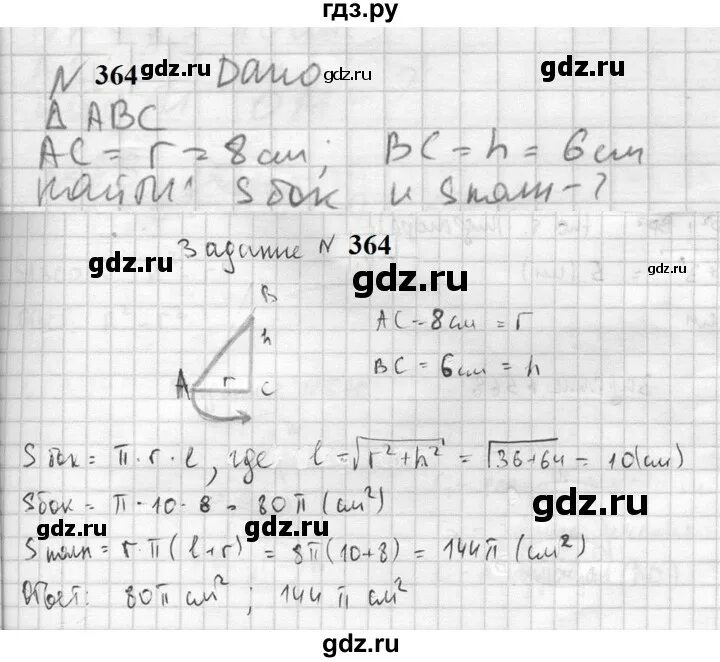 гдз.ру
N 364 gdz.ru Дано gdz.ru
Δ ABC
AC = r = 8 см; BC = h = 6 см
Найти: Sбок и Sполн - ?
gdz.ru
Задание N 364
gdz.ru gdz.ru
B
h
A r C
AC = 8 см = r
BC = 6 см = h
Sбок = π · r · l, где l = √r² + h² = √36+64 = 10 (см)
Sбок = π · 10 · 8 = 80π (см²) gdz.ru
gdz.ru
Sполн = r · π (l + r) = 8π (10 + 8) = 144π (см²)
Ответ: 80π см² ; 144π см²
gdz.ru
gdz.ru